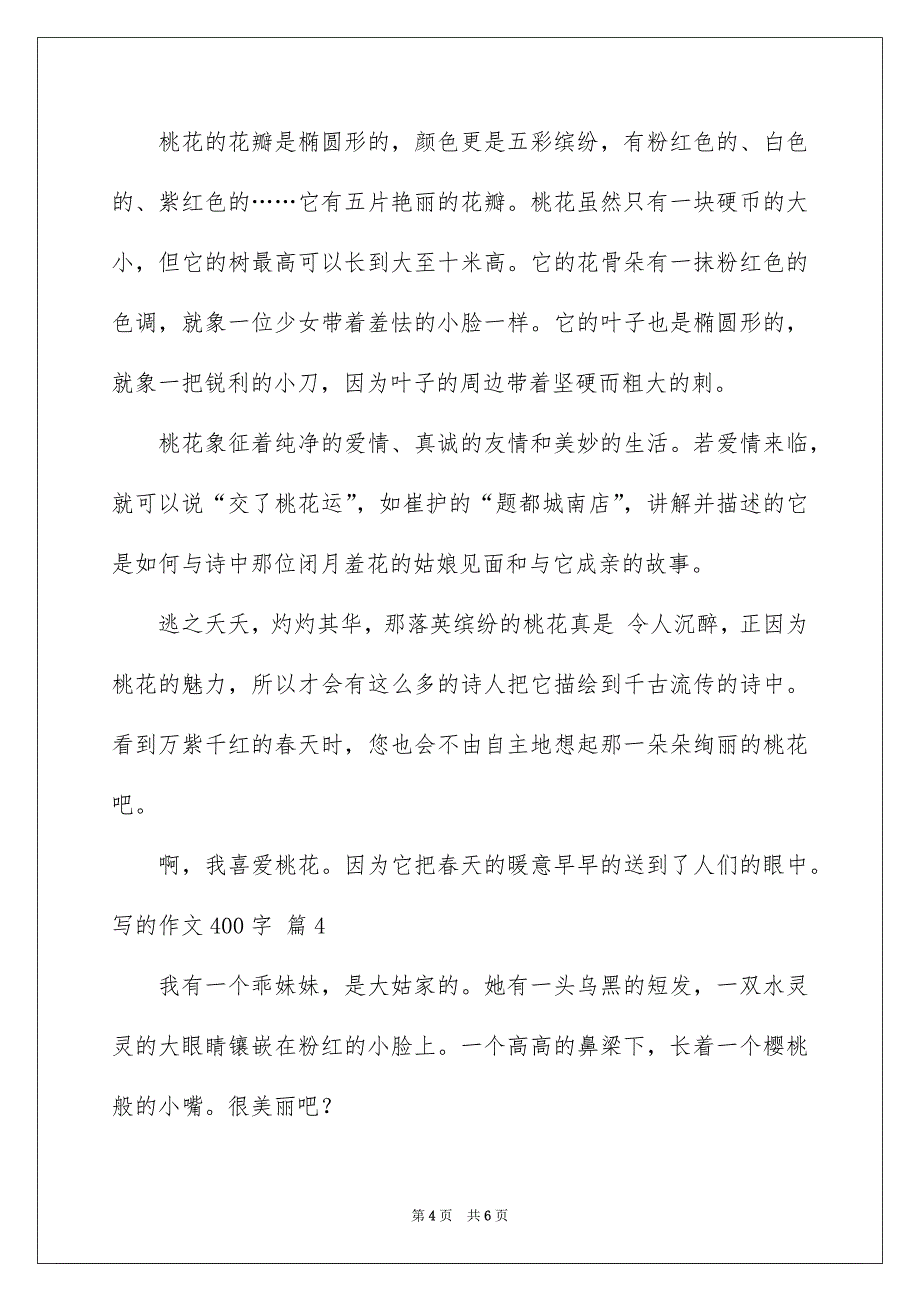 桃花的花瓣是椭圆形的，颜色更是五彩缤纷，有粉红色的、白色
的、紫红色的……它有五片艳丽的花瓣。桃花虽然只有一块硬币的大
小，但它的树最高可以长到大至十米高。它的花骨朵有一抹粉红色的
色调，就象一位少女带着羞怯的小脸一样。它的叶子也是椭圆形的，
就象一把锐利的小刀，因为叶子的周边带着坚硬而粗大的刺。
桃花象征着纯净的爱情、真诚的友情和美妙的生活。若爱情来临，
就可以说“交了桃花运”，如崔护的“题都城南店”，讲解并描述的它
是如何与诗中那位闭月羞花的姑娘见面和与它成亲的故事。
逃之夭夭，灼灼其华，那落英缤纷的桃花真是 令人沉醉，正因为
桃花的魅力，所以才会有这么多的诗人把它描绘到千古流传的诗中。
看到万紫千红的春天时，您也会不由自主地想起那一朵朵绚丽的桃花
吧。
啊，我喜爱桃花。因为它把春天的暖意早早的送到了人们的眼中。
写的作文 400 字 篇 4
我有一个乖妹妹，是大姑家的。她有一头乌黑的短发，一双水灵
灵的大眼睛镶嵌在粉红的小脸上。一个高高的鼻梁下，长着一个樱桃
般的小嘴。很美丽吧？
第 4 页 共 6 页